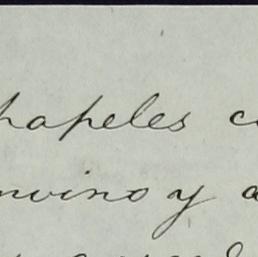 papeles c
nvino y a